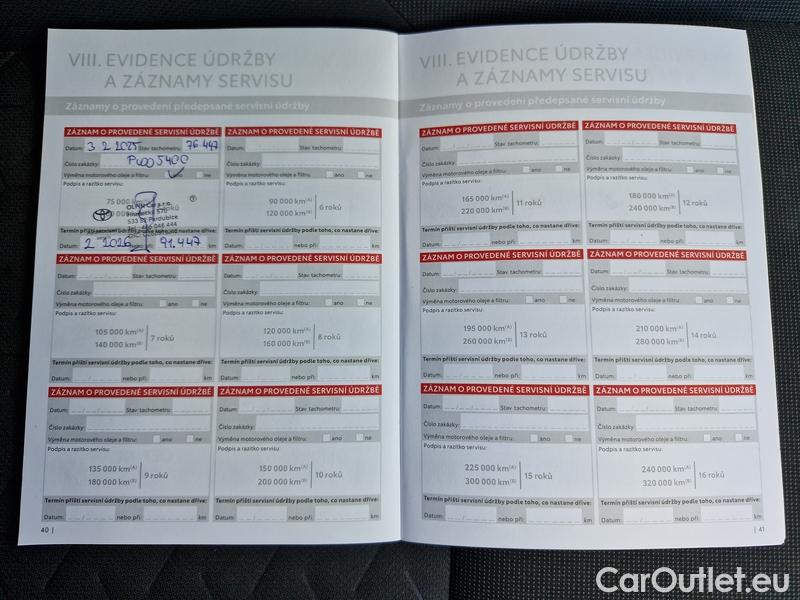 VIII. EVIDENCE ÚDRŽBY
A ZÁZNAMY SERVISU
Záznamy o provedení předepsané servisní údržby
ZÁZNAM O PROVEDENÉ SERVISNÍ ÚDRŽBĚ
Datum: 3 2 2025 Stav tachometru: 76 447
Číslo zakázky:
Výměna motorového oleje a filtru: ano ne
Podpis a razítko servisu
75 000 km
533 53 Pardubice
Termín příští servisní údržby podle toho, co nastane dříve:
Datum: 2 2026 nebo při: 91.447
ZÁZNAM O PROVEDENÉ SERVISNÍ ÚDRŽBĚ
Datum: Stav tachometru:
Číslo zakázky:
Výměna motorového oleje a filtru: ano ne
Podpis a razítko servisu
90 000 km(A)
120 000 km(B)
6 roků
Termín příští servisní údržby podle toho, co nastane dříve:
Datum: nebo při: km
ZÁZNAM O PROVEDENÉ SERVISNÍ ÚDRŽBĚ
Datum: Stav tachometru:
Číslo zakázky:
Výměna motorového oleje a filtru: ano ne
Podpis a razítko servisu
105 000 km(A)
140 000 km(B)
7 roků
Termín příští servisní údržby podle toho, co nastane dříve:
Datum: nebo při: km
ZÁZNAM O PROVEDENÉ SERVISNÍ ÚDRŽBĚ
Datum: Stav tachometru:
Číslo zakázky:
Výměna motorového oleje a filtru: ano ne
Podpis a razítko servisu
120 000 km(A)
160 000 km(B)
8 roků
Termín příští servisní údržby podle toho, co nastane dříve:
Datum: nebo při: km
ZÁZNAM O PROVEDENÉ SERVISNÍ ÚDRŽBĚ
Datum: Stav tachometru:
Číslo zakázky:
Výměna motorového oleje a filtru: ano ne
Podpis a razítko servisu
135 000 km(A)
180 000 km(B)
9 roků
Termín příští servisní údržby podle toho, co nastane dříve:
Datum: nebo při: km
ZÁZNAM O PROVEDENÉ SERVISNÍ ÚDRŽBĚ
Datum: Stav tachometru:
Číslo zakázky:
Výměna motorového oleje a filtru: ano ne
Podpis a razítko servisu
150 000 km(A)
200 000 km(B)
10 roků
Termín příští servisní údržby podle toho, co nastane dříve:
Datum: nebo při: km
40 |
VIII. EVIDENCE ÚDRŽBY
A ZÁZNAMY SERVISU
Záznamy o provedení předepsané servisní údržby
ZÁZNAM O PROVEDENÉ SERVISNÍ ÚDRŽBĚ
Datum: Stav tachometru:
Číslo zakázky:
Výměna motorového oleje a filtru: ano ne
Podpis a razítko servisu
165 000 km(A)
220 000 km(B)
11 roků
Termín příští servisní údržby podle toho, co nastane dříve:
Datum: nebo při: km
ZÁZNAM O PROVEDENÉ SERVISNÍ ÚDRŽBĚ
Datum: Stav tachometru:
Číslo zakázky:
Výměna motorového oleje a filtru: ano ne
Podpis a razítko servisu
180 000 km(A)
240 000 km(B)
12 roků
Termín příští servisní údržby podle toho, co nastane dříve:
Datum: nebo při: km
ZÁZNAM O PROVEDENÉ SERVISNÍ ÚDRŽBĚ
Datum: Stav tachometru:
Číslo zakázky:
Výměna motorového oleje a filtru: ano ne
Podpis a razítko servisu
195 000 km(A)
260 000 km(B)
13 roků
Termín příští servisní údržby podle toho, co nastane dříve:
Datum: nebo při: km
ZÁZNAM O PROVEDENÉ SERVISNÍ ÚDRŽBĚ
Datum: Stav tachometru:
Číslo zakázky:
Výměna motorového oleje a filtru: ano ne
Podpis a razítko servisu
210 000 km(A)
280 000 km(B)
14 roků
Termín příští servisní údržby podle toho, co nastane dříve:
Datum: nebo při: km
ZÁZNAM O PROVEDENÉ SERVISNÍ ÚDRŽBĚ
Datum: Stav tachometru:
Číslo zakázky:
Výměna motorového oleje a filtru: ano ne
Podpis a razítko servisu
225 000 km(A)
300 000 km(B)
15 roků
Termín příští servisní údržby podle toho, co nastane dříve:
Datum: nebo při: km
ZÁZNAM O PROVEDENÉ SERVISNÍ ÚDRŽBĚ
Datum: Stav tachometru:
Číslo zakázky:
Výměna motorového oleje a filtru: ano ne
Podpis a razítko servisu
240 000 km(A)
320 000 km(B)
16 roků
Termín příští servisní údržby podle toho, co nastane dříve:
Datum: nebo při: km
| 41
CarOutlet.eu